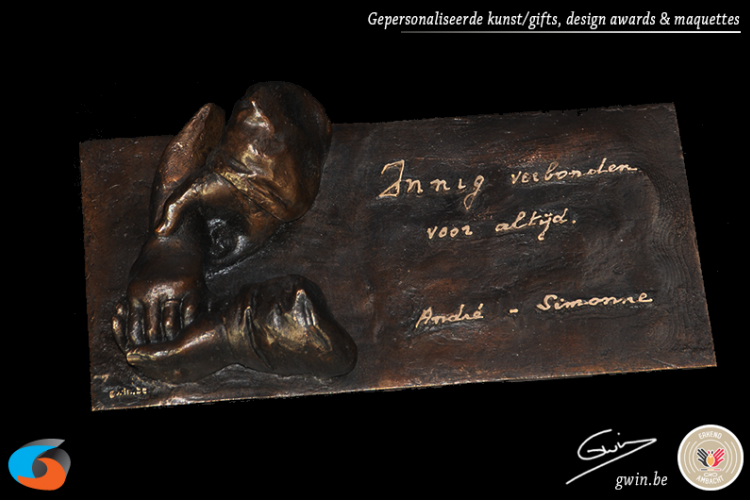 Gepersonaliseerde kunst/gifts, design awards & maquettes
Innig verbonden
voor altijd.
André - Simonne
Gwin
gwin.be
ERKEND
AMBACHT